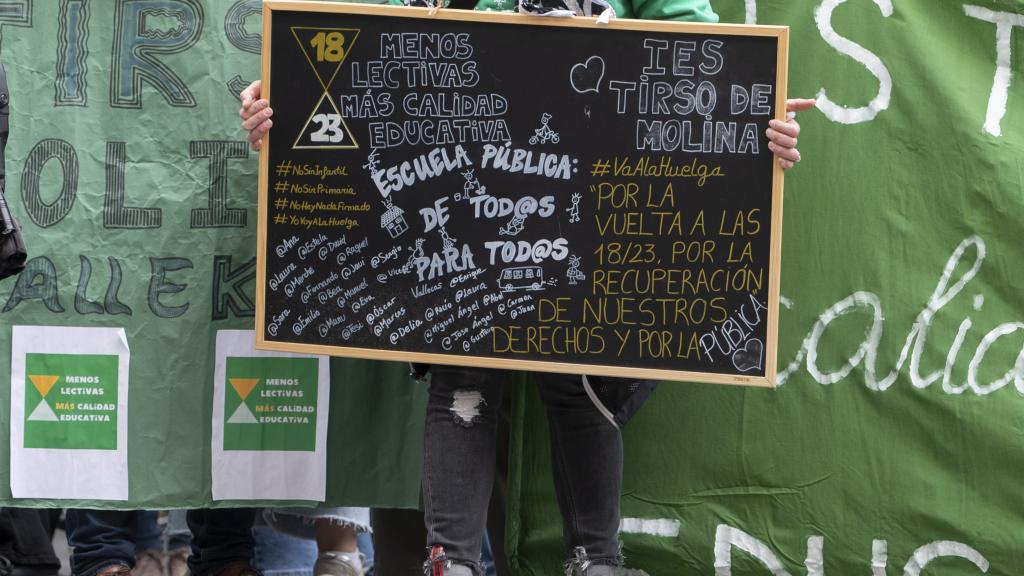 18
23
MENOS
LECTIVAS
MÁS CALIDAD
EDUCATIVA
IES
TIRSO DE
MOLINA
#NoSinInfantil
#NoSinPrimaria
#NoHayNadaFirmado
#YoVoyALaHuelga
ESCUELA PÚBLICA:
DE TOD@S
PARA TOD@S
#VaAlaHuelga
"POR LA
VUELTA A LAS
18/23, POR LA
RECUPERACIÓN
DE NUESTROS
DERECHOS Y POR LA
PÚBLICA
@Ana
@Estela
@David
@Raquel
@Laura
@Marche
@Fernando
@Javi
@Sergio
@Bea
@Manuel
@Sara
@Emilio
@Manu
@Eva
@Tesi
@Oscar
@Marcos
@Delia
@Rocío
@Laura
@Miguel Ángel
@Abel
@Carmen
@José Ángel
@Juan
Vallecas
@Enrique
TIRSO
MOLI
VALLEK
MENOS
LECTIVAS
MÁS CALIDAD
EDUCATIVA
MENOS
LECTIVAS
MÁS CALIDAD
EDUCATIVA